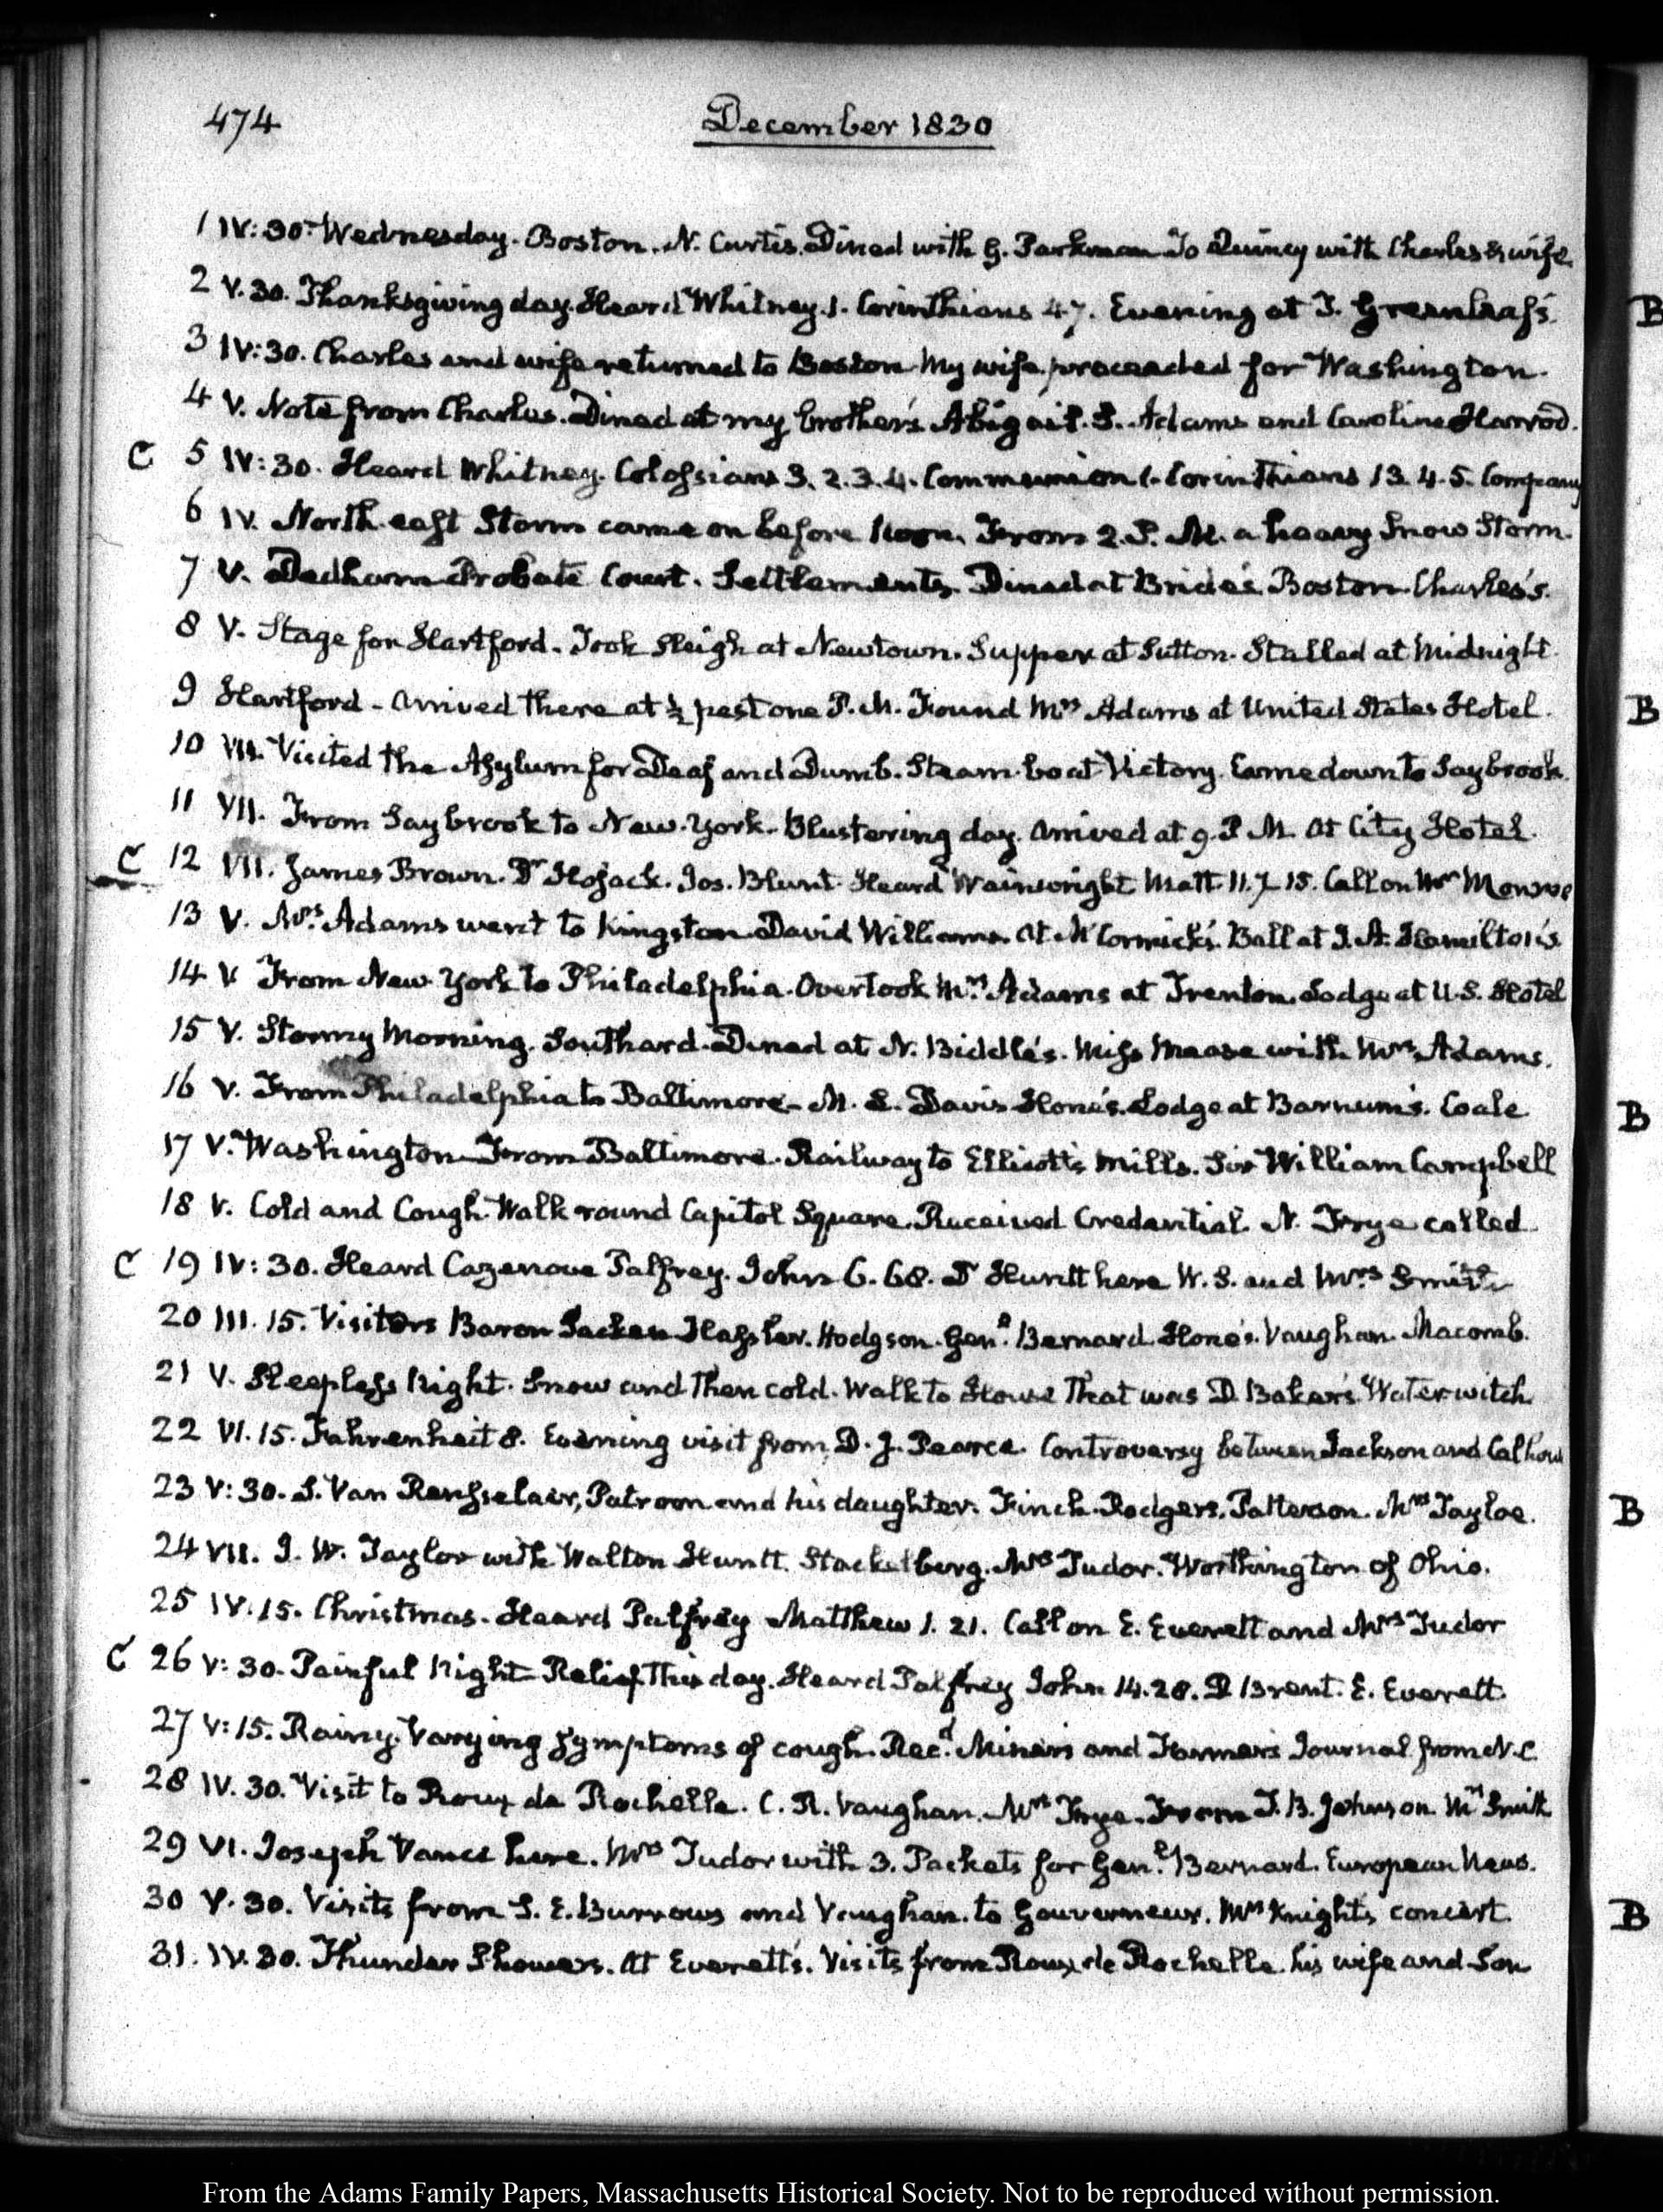 474
December 1830
1 IV:30. Wednesday. Boston. N. Curtis. Dined with G. Parkman To Quincy with Charles & wife
2 V.30. Thanksgiving day. Heard Whitney. 1. Corinthians 4.7. Evening at T. Greenleaf's.
B
3 IV:30. Charles and wife returned to Boston My wife proceeded for Washington.
4 V. Note from Charles. Dined at my brother's Abigail. S. Adams and Caroline Harrod.
C 5 IV:30. Heard Whitney. Colossians 3. 2.3.4. Communion 1. Corinthians 13. 4.5. Company
6 IV. North east Storm came on before Noon. From 2. P. M. a heavy Snow Storm.
7 V. Dedham Probate Court. Settlements. Dined at Bride's. Boston. Charles's.
8 V. Stage for Hartford. Took Sleigh at Newtown. Supper at Sutton. Stalled at Midnight.
9 Hartford - arrived there at ½ past one P.M. Found Mrs Adams at United States Hotel.
B
10 VII. Visited the Asylum for Deaf and Dumb. Steam-boat Victory. Came down to Saybrook.
11 VII. From Saybrook to New-York. Blustering day. Arrived at 9. P. M. At City Hotel.
C 12 VII. James Brown. Dr Hosack. Jos. Blunt. Heard Wainwright Matt. 11. 15. Call on Monroe
13 V. Mrs. Adams went to Kingston David Williams. At McCormick's. Ball at J. A. Hamilton's
14 V From New York to Philadelphia. Overtook Mrs. Adams at Trenton. Lodge at U.S. Hotel
15 V. Stormy Morning. Southard. Dined at N. Biddle's. Miss Mease with Mrs. Adams.
16 V. From Philadelphia to Baltimore. M. L. Davis Hone's. Lodge at Barnum's. Coale
B
17 V. Washington From Baltimore. Railway to Ellicott's Mills. Sir William Campbell
18 V. Cold and Cough. Walk round Capitol Square. Received Credential. N. Frye called
C 19 IV:30. Heard Cazenove Palfrey. John 6.68. Dr Huntt here W. S. and Mrs. Smith
20 III.15. Visitors Baron Sacken Hassler. Hodgson. Genl. Bernard. Hone's. Vaughan. Macomb.
21 V. Sleepless Night. Snow and then cold. Walk to House that was D Baker's. Waterwitch.
22 VI.15. Fahrenheit 8. Evening visit from D. J. Pearce. Controversy between Jackson and Calhoun
23 V:30. S. Van Rensselair, Patroon and his daughter. Finch. Rodgers. Patterson. Mrs Tayloe.
B
24 VII. J. W. Taylor with Walton Huntt. Stackelberg. Mrs Tudor. Worthington of Ohio.
25 IV.15. Christmas. Heard Palfrey Matthew 1. 21. Call on E. Everett and Mrs Tudor
C 26 V:30. Painful Night Relief This day. Heard Palfrey John 14.28. D Brent. E. Everett.
27 V:15. Rainy. Varying symptoms of cough. Recd. Miner's and Farmer's Journal from N.C.
28 IV.30. Visit to Roux de Rochelle. C. R. Vaughan. Mrs Frye. From T. B. Johnson. Mrs Smith
29 VI. Joseph Vance here. Mrs Tudor with 3. Packets for Genl. Bernard. European News.
30 V.30. Visits from S. E. Burrows and Vaughan. to Gouverneur. Mrs Knight's concert.
B
31. IV.30. Thunder Showers. At Everett's. Visits from Roux de Rochelle. his wife and Son
From the Adams Family Papers, Massachusetts Historical Society. Not to be reproduced without permission.